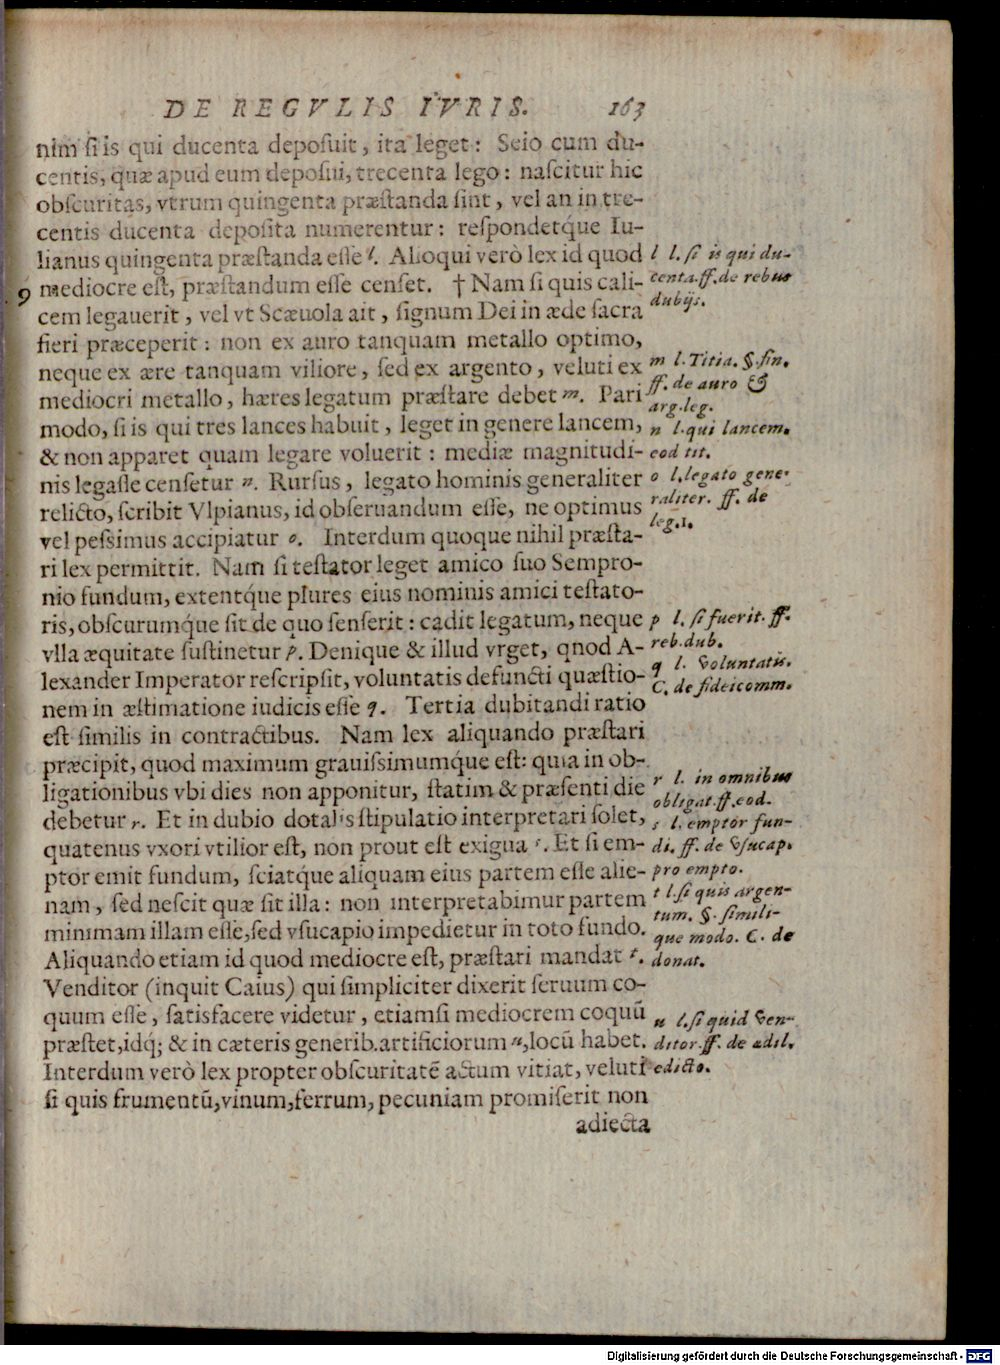 DE REGVLIS IVRIS. 163
nim si is qui ducenta deposuit, ita leget: Seio cum du-
centis, quæ apud eum deposui, trecenta lego: nascitur hic
obscuritas, vtrum quingenta præstanda sint, vel an in tre-
centis ducenta deposita numerentur: respondetq́ue Iu-
lianus quingenta præstanda esse l. Alioqui verò lex id quod
9 mediocre est, præstandum esse censet. † Nam si quis cali-
cem legauerit, vel vt Scæuola ait, signum Dei in æde sacra
fieri præceperit: non ex auro tanquam metallo optimo,
neque ex ære tanquam viliore, sed ex argento, veluti ex
mediocri metallo, hæres legatum præstare debet m. Pari
modo, si is qui tres lances habuit, leget in genere lancem,
& non apparet quam legare voluerit: mediæ magnitudi-
nis legasse censetur n. Rursus, legato hominis generaliter
relicto, scribit Vlpianus, id obseruandum esse, ne optimus
vel pessimus accipiatur o. Interdum quoque nihil præsta-
ri lex permittit. Nam si testator leget amico suo Sempro-
nio fundum, extentq́ue plures eius nominis amici testato-
ris, obscurumq́ue sit de quo senserit: cadit legatum, neque
vlla æquitate sustinetur p. Denique & illud vrget, qnod A-
lexander Imperator rescripsit, voluntatis defuncti quæstio-
nem in æstimatione iudicis esse q. Tertia dubitandi ratio
est similis in contractibus. Nam lex aliquando præstari
præcipit, quod maximum grauissimumq́ue est: quia in ob-
ligationibus vbi dies non apponitur, statim & præsenti die
debetur r. Et in dubio dotalis stipulatio interpretari solet,
quatenus vxori vtilior est, non prout est exigua s. Et si em-
ptor emit fundum, sciatque aliquam eius partem esse alie-
nam, sed nescit quæ sit illa: non interpretabimur partem
minimam illam esse, sed vsucapio impedietur in toto fundo.
Aliquando etiam id quod mediocre est, præstari mandat t.
Venditor (inquit Caius) qui simpliciter dixerit seruum co-
quum esse, satisfacere videtur, etiamsi mediocrem coquũ
præstet, idq́; & in cæteris generib. artificiorum u, locũ habet.
Interdum verò lex propter obscuritatẽ actum vitiat, veluti
si quis frumentũ, vinum, ferrum, pecuniam promiserit non
adiecta
l l. si is qui du-
centa. ff. de rebus
dubijs.
m l. Titia. §. fin.
ff. de auro &
arg. leg.
n l. qui lancem.
eod tit.
o l. legato gene-
raliter. ff. de
leg. 1.
p l. si fuerit. ff.
reb. dub.
q l. voluntatis.
C. de fideicomm.
r l. in omnibus
obligat. ff. eod.
s l. emptor fun-
di. ff. de vsucap.
pro empto.
t l. si quis argen-
tum. §. simili-
que modo. C. de
donat.
u l. si quid ven-
ditor. ff. de ædil.
edicto.
Digitalisierung gefördert durch die Deutsche Forschungsgemeinschaft - DFG